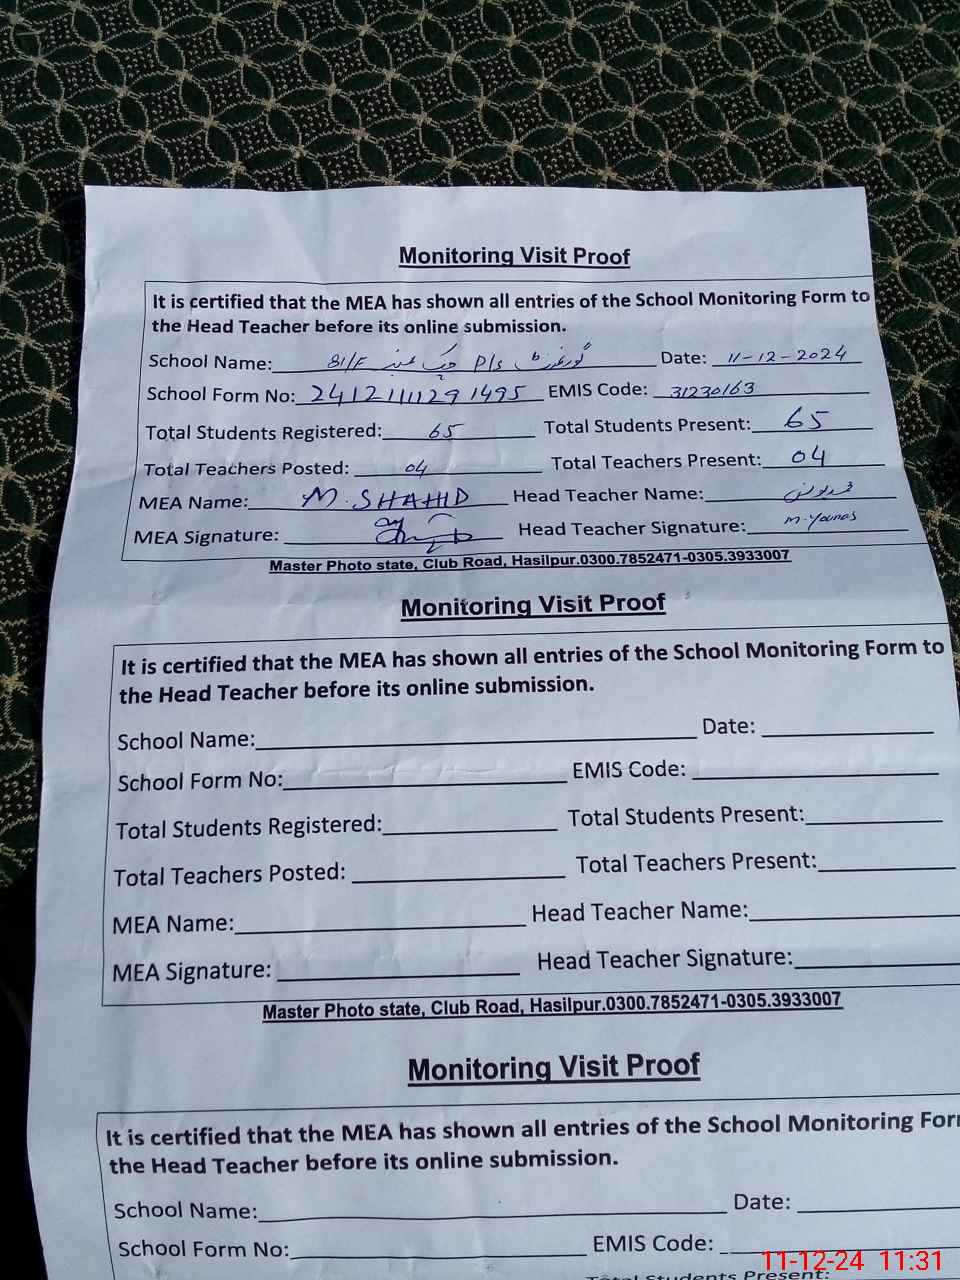 Monitoring Visit Proof
It is certified that the MEA has shown all entries of the School Monitoring Form to
the Head Teacher before its online submission.
School Name: گورنمنٹ P/s چک 81/F Date: 11-12-2024
School Form No: 2412111291495 EMIS Code: 31230163
Total Students Registered: 65 Total Students Present: 65
Total Teachers Posted: 04 Total Teachers Present: 04
MEA Name: M.SHAHID Head Teacher Name: محمد یونس
MEA Signature: Head Teacher Signature: M.Younas
Master Photo state, Club Road, Hasilpur.0300.7852471-0305.3933007
Monitoring Visit Proof
It is certified that the MEA has shown all entries of the School Monitoring Form to
the Head Teacher before its online submission.
School Name: Date:
School Form No: EMIS Code:
Total Students Registered: Total Students Present:
Total Teachers Posted: Total Teachers Present:
MEA Name: Head Teacher Name:
MEA Signature: Head Teacher Signature:
Master Photo state, Club Road, Hasilpur.0300.7852471-0305.3933007
Monitoring Visit Proof
It is certified that the MEA has shown all entries of the School Monitoring For
the Head Teacher before its online submission.
School Name: Date:
School Form No: EMIS Code:
Total Students Present:
11-12-24 11:31